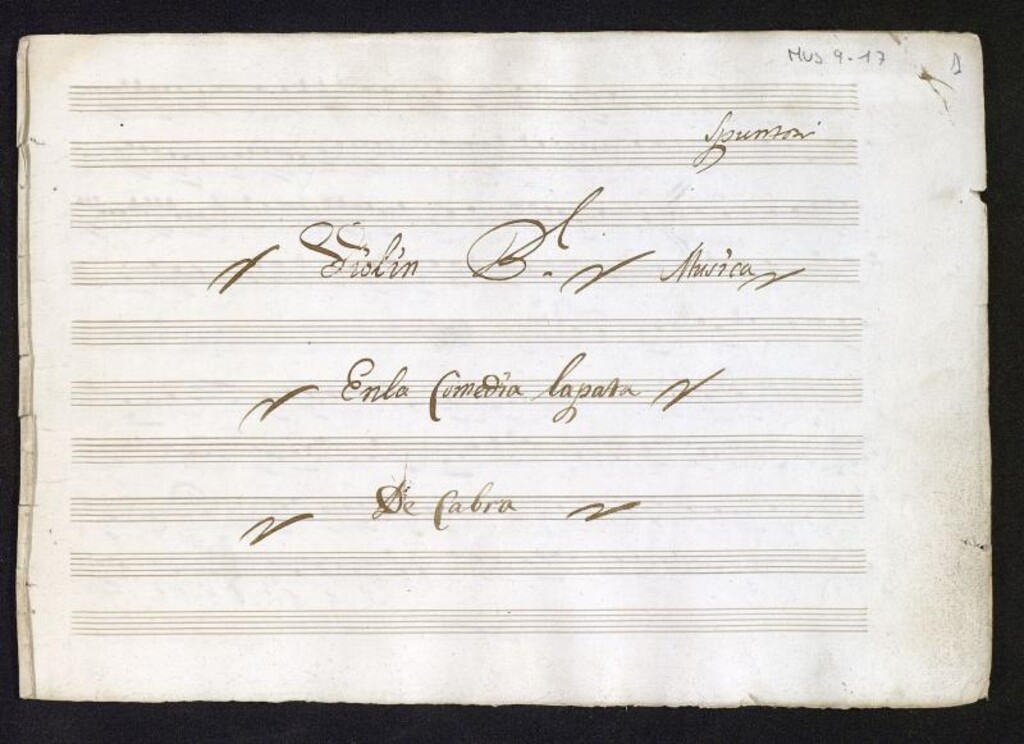 Mus 9-17
Spuntoni
Violin B.l Musica
Enla Comedia lapata
De Cabra